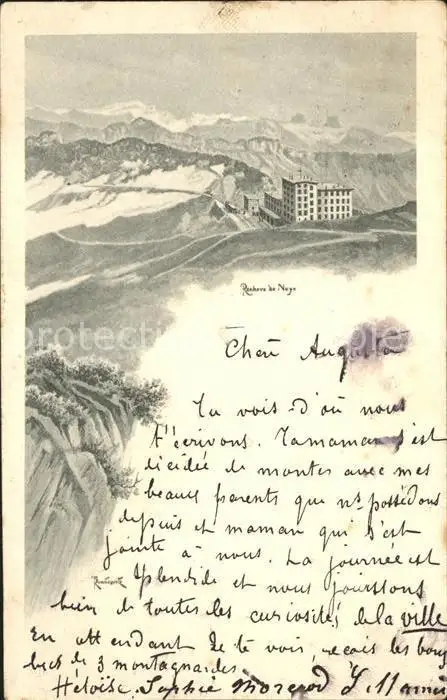 Rochers de Naye
Cherè Augusta
Tu vois d'où nous
t'écrivons. Ta maman s'est
décidée de monter avec mes
beaux parents que ns possédons
depuis et maman qui s'est
jointe à nous. La journée est
splendide et nous jouissons
bien de toutes les curiosités de la ville
En attendant de te voir, reçois les bons
becs de 3 montagnardes
Héloïse, Sophie